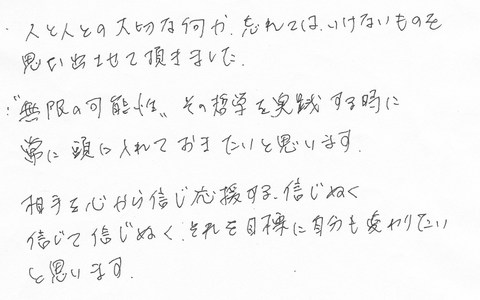 ・人と人との大切な何か、忘れてはいけないものを
思い出させて頂きました。
・"無限の可能性"その哲学を実践する時に
常に頭に入れておきたいと思います。
相手を心から信じ応援する、信じぬく
信じて信じぬく、それを目標に自分も変わりたい
と思います。